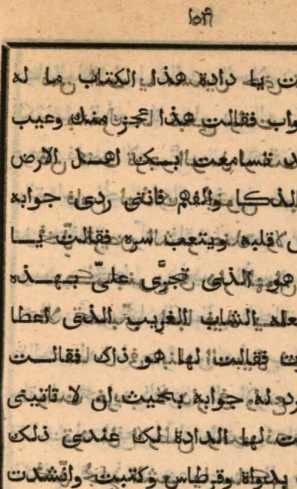 يا دادة هذا الكتاب ما له
فقالت هذا عجز منك وعيب
اهل الارض
والفهم فانني ردي جوابه
قلبه ويتعب سره فقالت يا
هو الذي تجرى علىّ بهذه
الشاب الغريب الذي اعطا
فقالت لها هو ذاك فقالت
له جوابه بحيث ان لا تاتيني
لها الدادة لكا عندي ذلك
بدواة وقرطاس وكتبت وانشدت